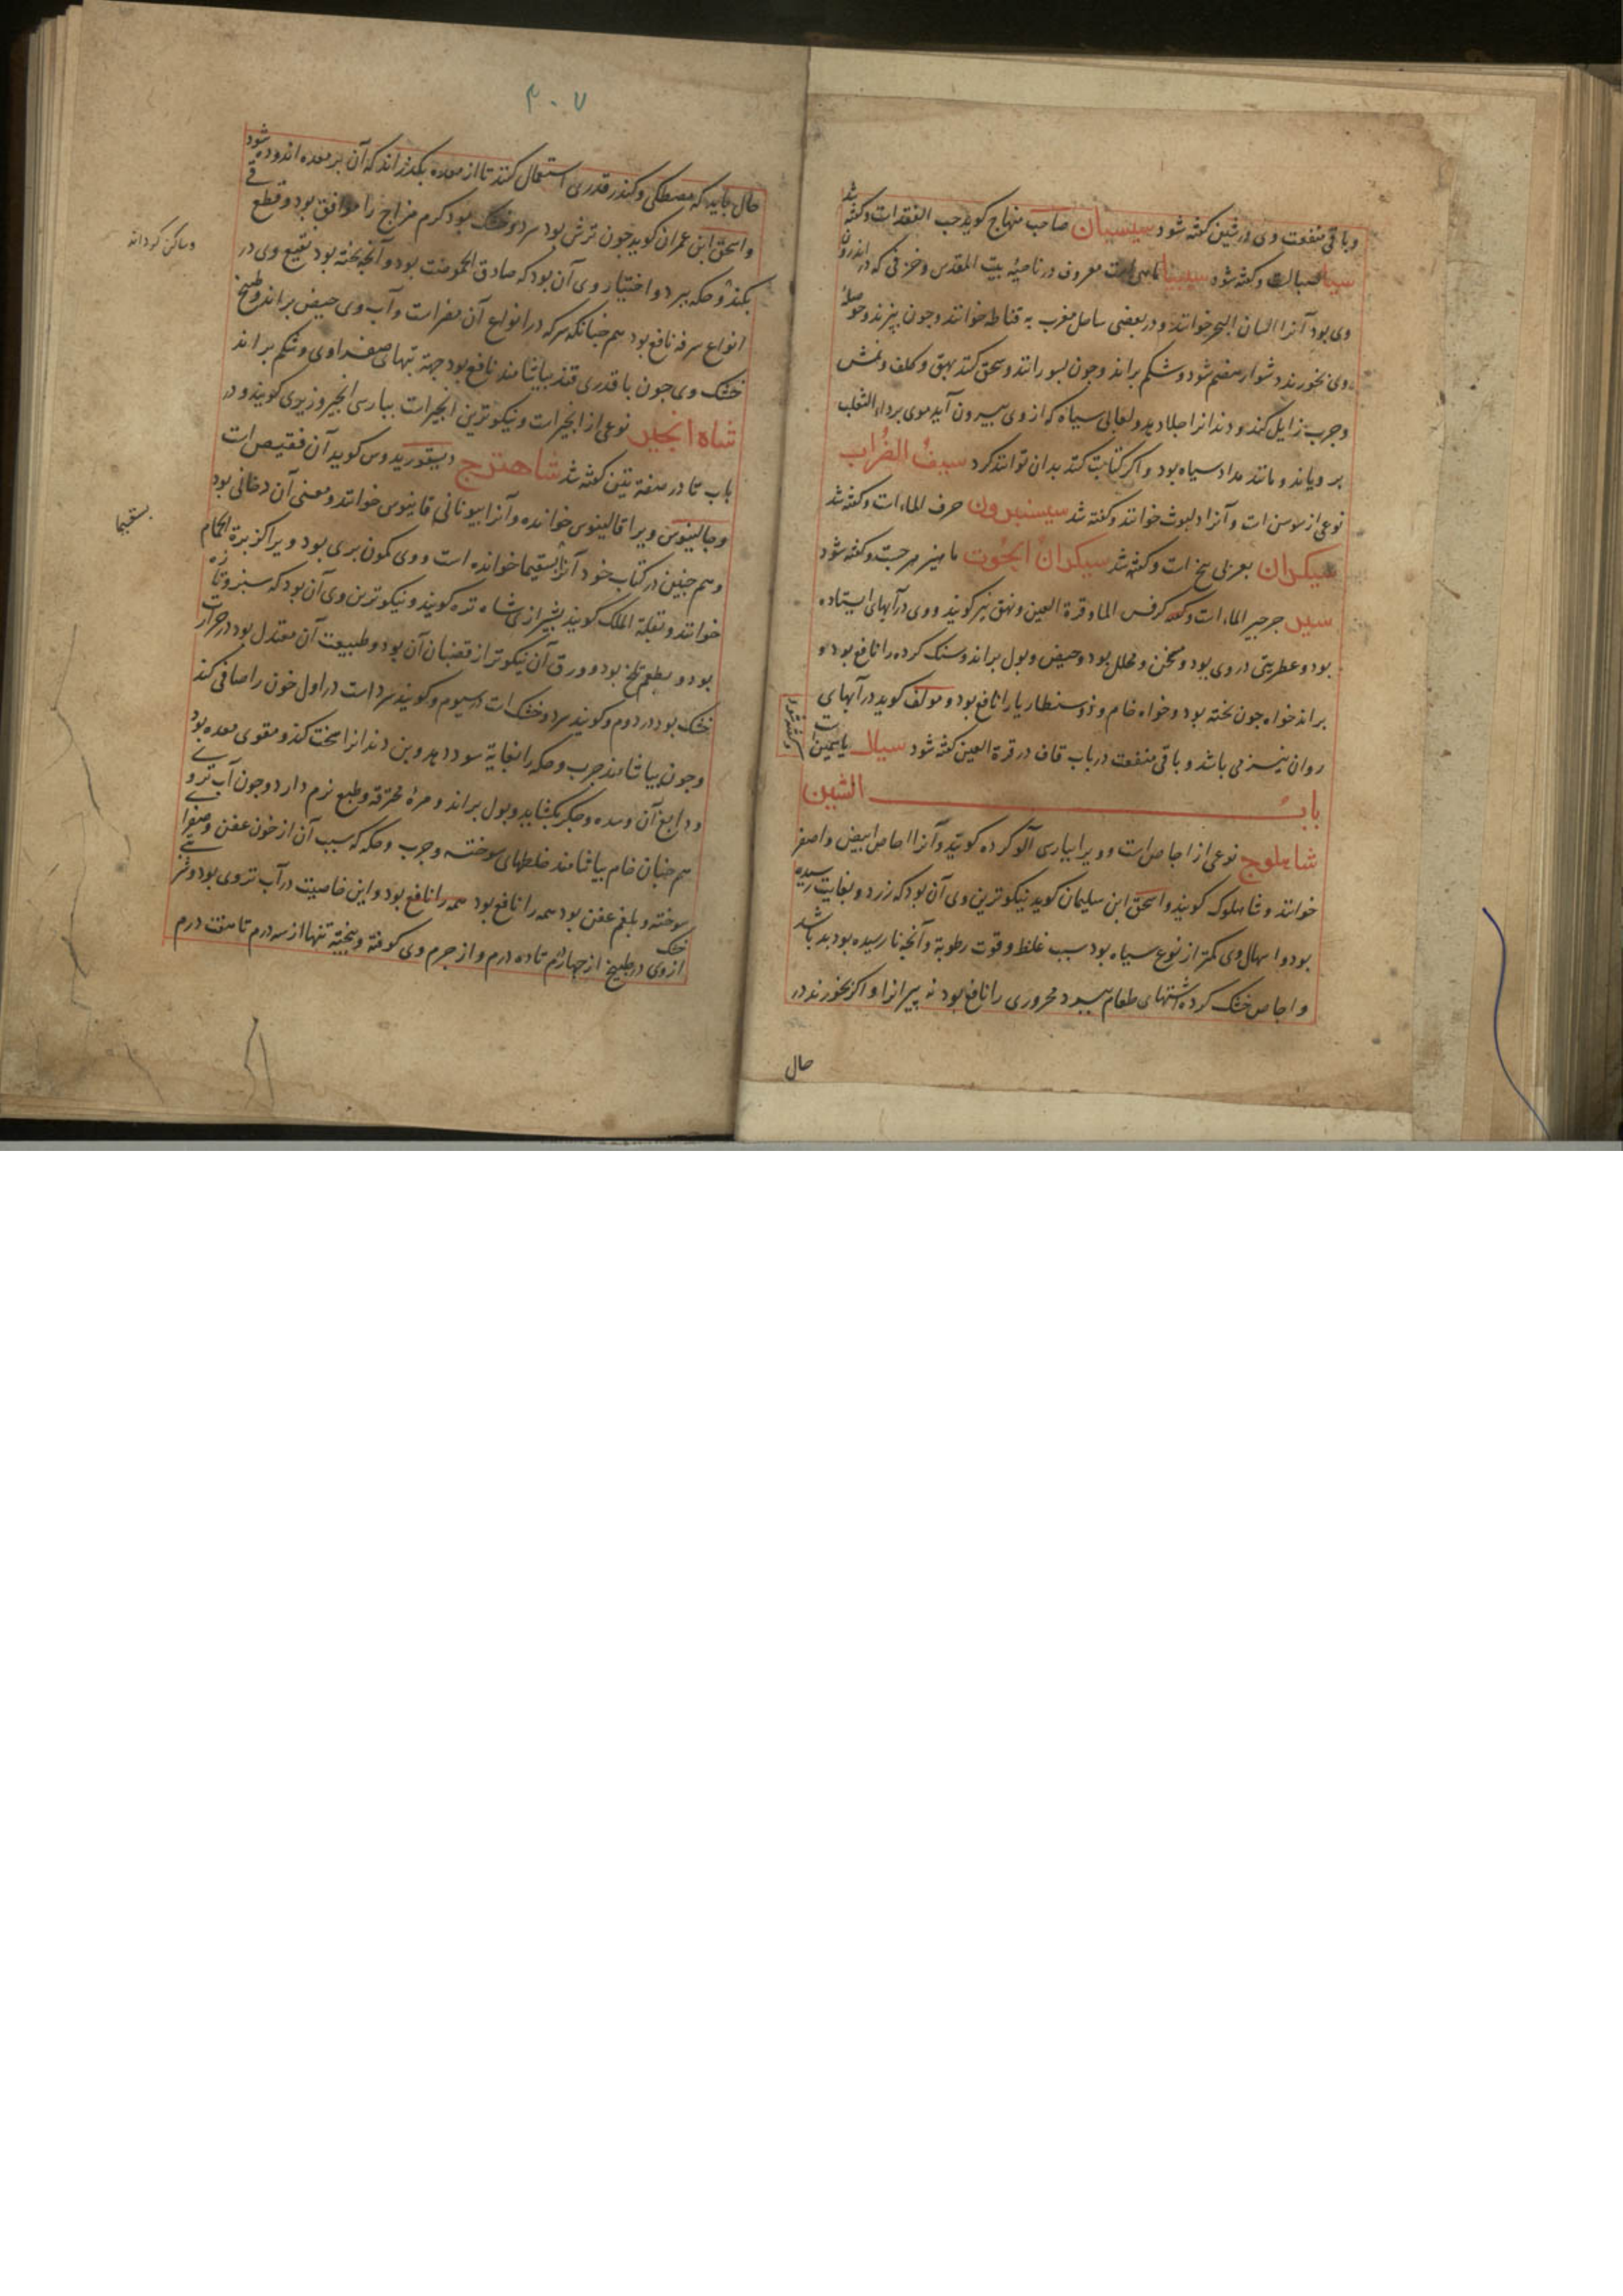 وباقی منفعت وی در شین کفته شود سیسبان صاحب منهاج کوید حب الفقدات وکفته شد
سبا است وکفته شود سیبیا ماهی است معروف در ناحیه بیت المقدس وخزفی که در اندرون
وی بود آنرا لسان البحر خوانند ودر بعضی ساحل مغرب به قناطه خوانند وجون بپزند وحوصله
وی بخورند دشوار هضم شود وشکم براند وجون بسورانند وسحق کنند بهق وکلف ونمش
وجرب زایل کند ودندانرا جلا دهد ولعابی سیاه که از وی بیرون آید موی بر داء الثعلب
برویاند ومانند مداد سیاه بود واکر کتابت کنند بدان توانند کرد سیف الغراب
نوعی از سوسن است وآنرا دلبوث خوانند وکفته شد سیسنبرون حرف الماء است وکفته شد
سیکران بعربی بنج است وکفته شد سیکران الحوت ماهیزهرجست وکفته شود
سیر جرجیر الماء است وکفته کرفس الماء وقرة العین ونهق نیز کویند ووی در آبهای ایستاده
بود وعطریتی در وی بود ومسخن ومحلل بود وحیض وبول براند وسنک کرده را نافع بود و
براند خواه جون بخته بود وخواه خام وذوسنطاریا را نافع بود ومولف کوید در آبهای
روان نیز می باشد وباقی منفعت در باب قاف در قرة العین کفته شود سیال یاسمین است
وکفته شود
باب الشین
شاهلوج نوعی از اجاص است وویرا بپارسی آلو کرده کویند وآنرا اجاص ابیض واصفر
خوانند وشاهلوک کویند واسحق ابن سلیمان کوید نیکوترین وی آن بود که زرد وبغایت رسیده
بود واسهال وی کمتر از نوع سیاه بود سبب غلظ وقوت رطوبة وآنجه نارسیده بود بد باشد
واجاص خشک کرده اشتهای طعام ببرد محروری را نافع بود نه پیرانرا واکر بخورند در
حال
۲۰۷
حال باید که مصطکی وکندر قدری استعمال کنند تا از معده بکذراند که آن بر معده اندوده شود
واسحق ابن عمران کوید جون ترش بود سرد وخشک بود کرم مزاج را موافق بود وقطع قی
بکند وحکه ببرد واختیار وی آن بود که صادق الحموضت بود وآنجه بخته بود نقیع وی در
انواع سرفه نافع بود هم جنانکه سرکه در انواع آن مضر است وآب وی حیض براند وطبیخ
خشک وی جون با قدری قند بیاشامند نافع بود جهة تبهای صفراوی وشکم براند
شاه انجیر نوعی از انجیر است ونیکوترین انجیرات بپارسی انجیر وزیری کویند ودر
باب تا در صفة تین کفته شد شاهترج دیسقوریدوس کوید آن فقیص است
وجالینوس ویرا قالینوس خوانده وآنرا بیونانی قاپنوس خوانند ومعنی آن دخانی بود
وهم جنین در کتاب خود آنرا بشقیما خوانده است ووی کمون بری بود ویرا کزبرة الحمام
خوانند وبقلة الملک کویند بشیرازی شاه تره کویند ونیکوترین وی آن بود که سبز وتازه
بود وبطعم تلخ بود وورق آن نیکوتر از قضبان آن بود وطبیعت آن معتدل بود در حرارت
خشک بود در دوم وکویند سرد وخشک است در سیوم وکویند سرد است در اول خون را صافی کند
وجون بیاشامند جرب وحکه را بغایة سود دهد وبن دندانرا سخت کند ومقوی معده بود
ودابغ آن وسده وجکر بکشاید وبول براند ومرة محرقه وطبع نرم دارد وجون آب تر وی
هم جنان خام بیاشامند خلطهای سوخته وجرب وحکه که سبب آن از خون عفن وصفرای
سوخته وبلغم عفن بود همه را نافع بود همه را نافع بود واین خاصیت در آب تر وی بود
از وی خشک در طبیخ از جهار درم تا ده درم واز جرم وی کوفته وبیخته تنها از سه درم تا هفت درم
وساکن کرداند
بسقیما